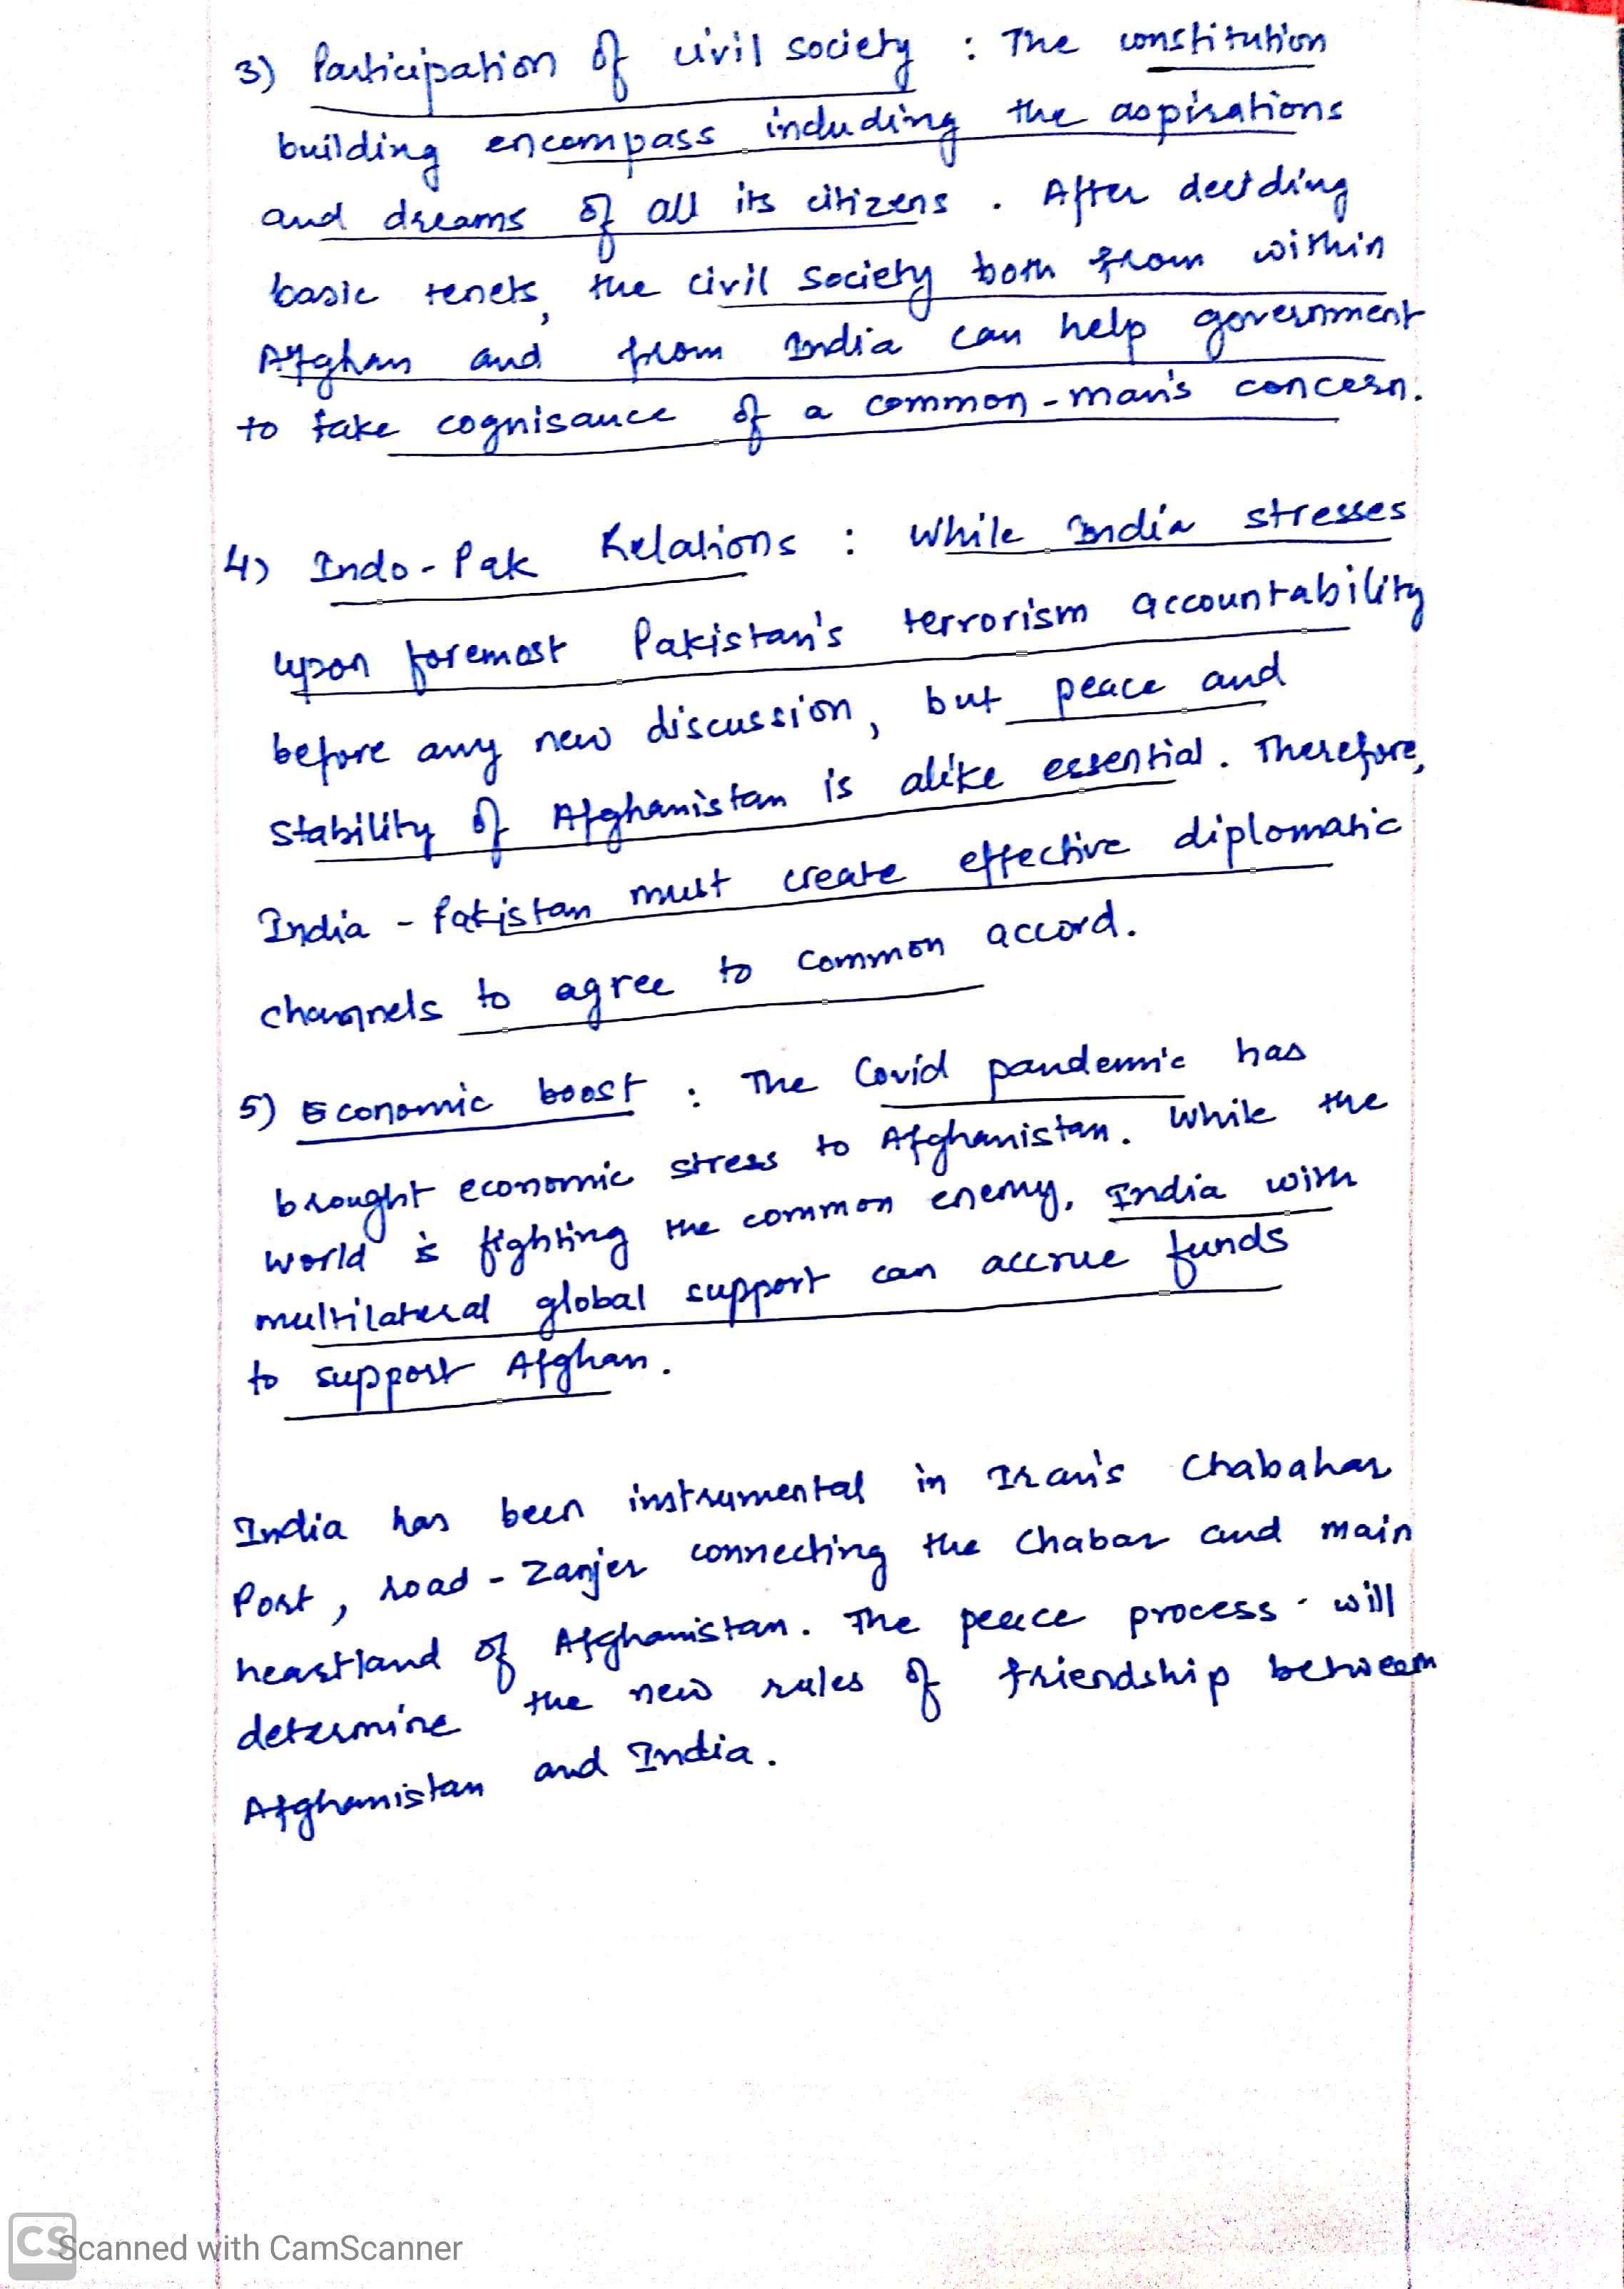 3) Participation of civil society : The constitution
building encompass including the aspirations
and dreams of all its citizens . After deciding
basic tenets, the civil society both from within
Afghan and from India can help government
to take cognisance of a common-man's concern.
4) Indo-Pak Relations : While India stresses
upon foremost Pakistan's terrorism accountability
before any new discussion, but peace and
stability of Afghanistan is alike essential. Therefore,
India - Pakistan must create effective diplomatic
channels to agree to common accord.
5) Economic boost : The Covid pandemic has
brought economic stress to Afghanistan. While the
world is fighting the common enemy, India with
multilateral global support can accrue funds
to support Afghan.
India has been instrumental in Iran's Chabahar
Port, road - Zanjer connecting the Chabar and main
heartland of Afghanistan. The peace process will
determine the new rules of friendship between
Afghanistan and India.
CS Scanned with CamScanner